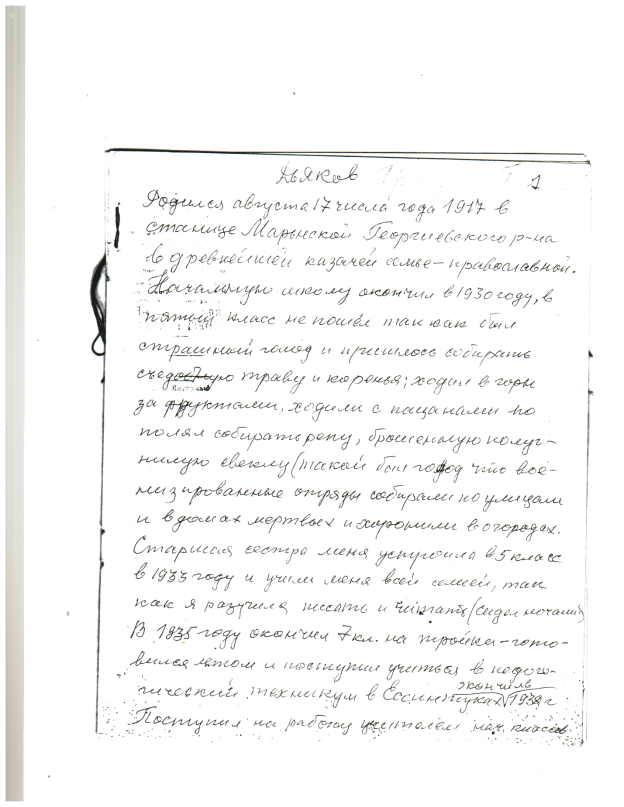 Дьяков 1
Родился августа 17 числа года 1917 в
станице Марьнской Георгиевского р-на
в древнейшей казачей семье - православной.
Начальную школу окончил в 1930 году, в
пятый класс не пошёл так как был
страшный голод и пришлось собирать
съедобную траву и коренья; ходил в горы
за фруктами, ходили с пацанами по
полям собирать репу, брошенную полуг-
нилую свеклу (такой был голод что вое-
низированные отряды собирали по улицам
и в домах мертвых и хоронили в огородах.
Старшая сестра меня устроила в 5 класс
в 1933 году и учили меня всей семьей, так
как я разучился писать и читать (сидел ночами)
В 1935 году окончил 7 кл. на тройки - гото-
вился летом и поступил учиться в педаго-
гический техникум в Ессентуках окончил 1939 г
Поступил на работу учителем нач. классов